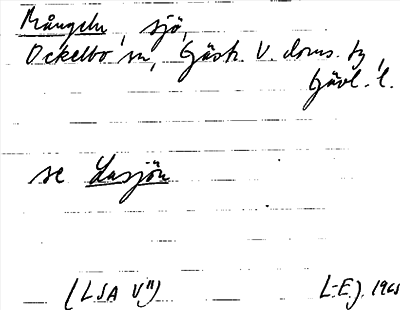 Mångeln, sjö,
Ockelbo sn, Gästr. V. doms. by,
Gävl. l.
se Lusjön
(LSA V11)
L-E.J. 1965